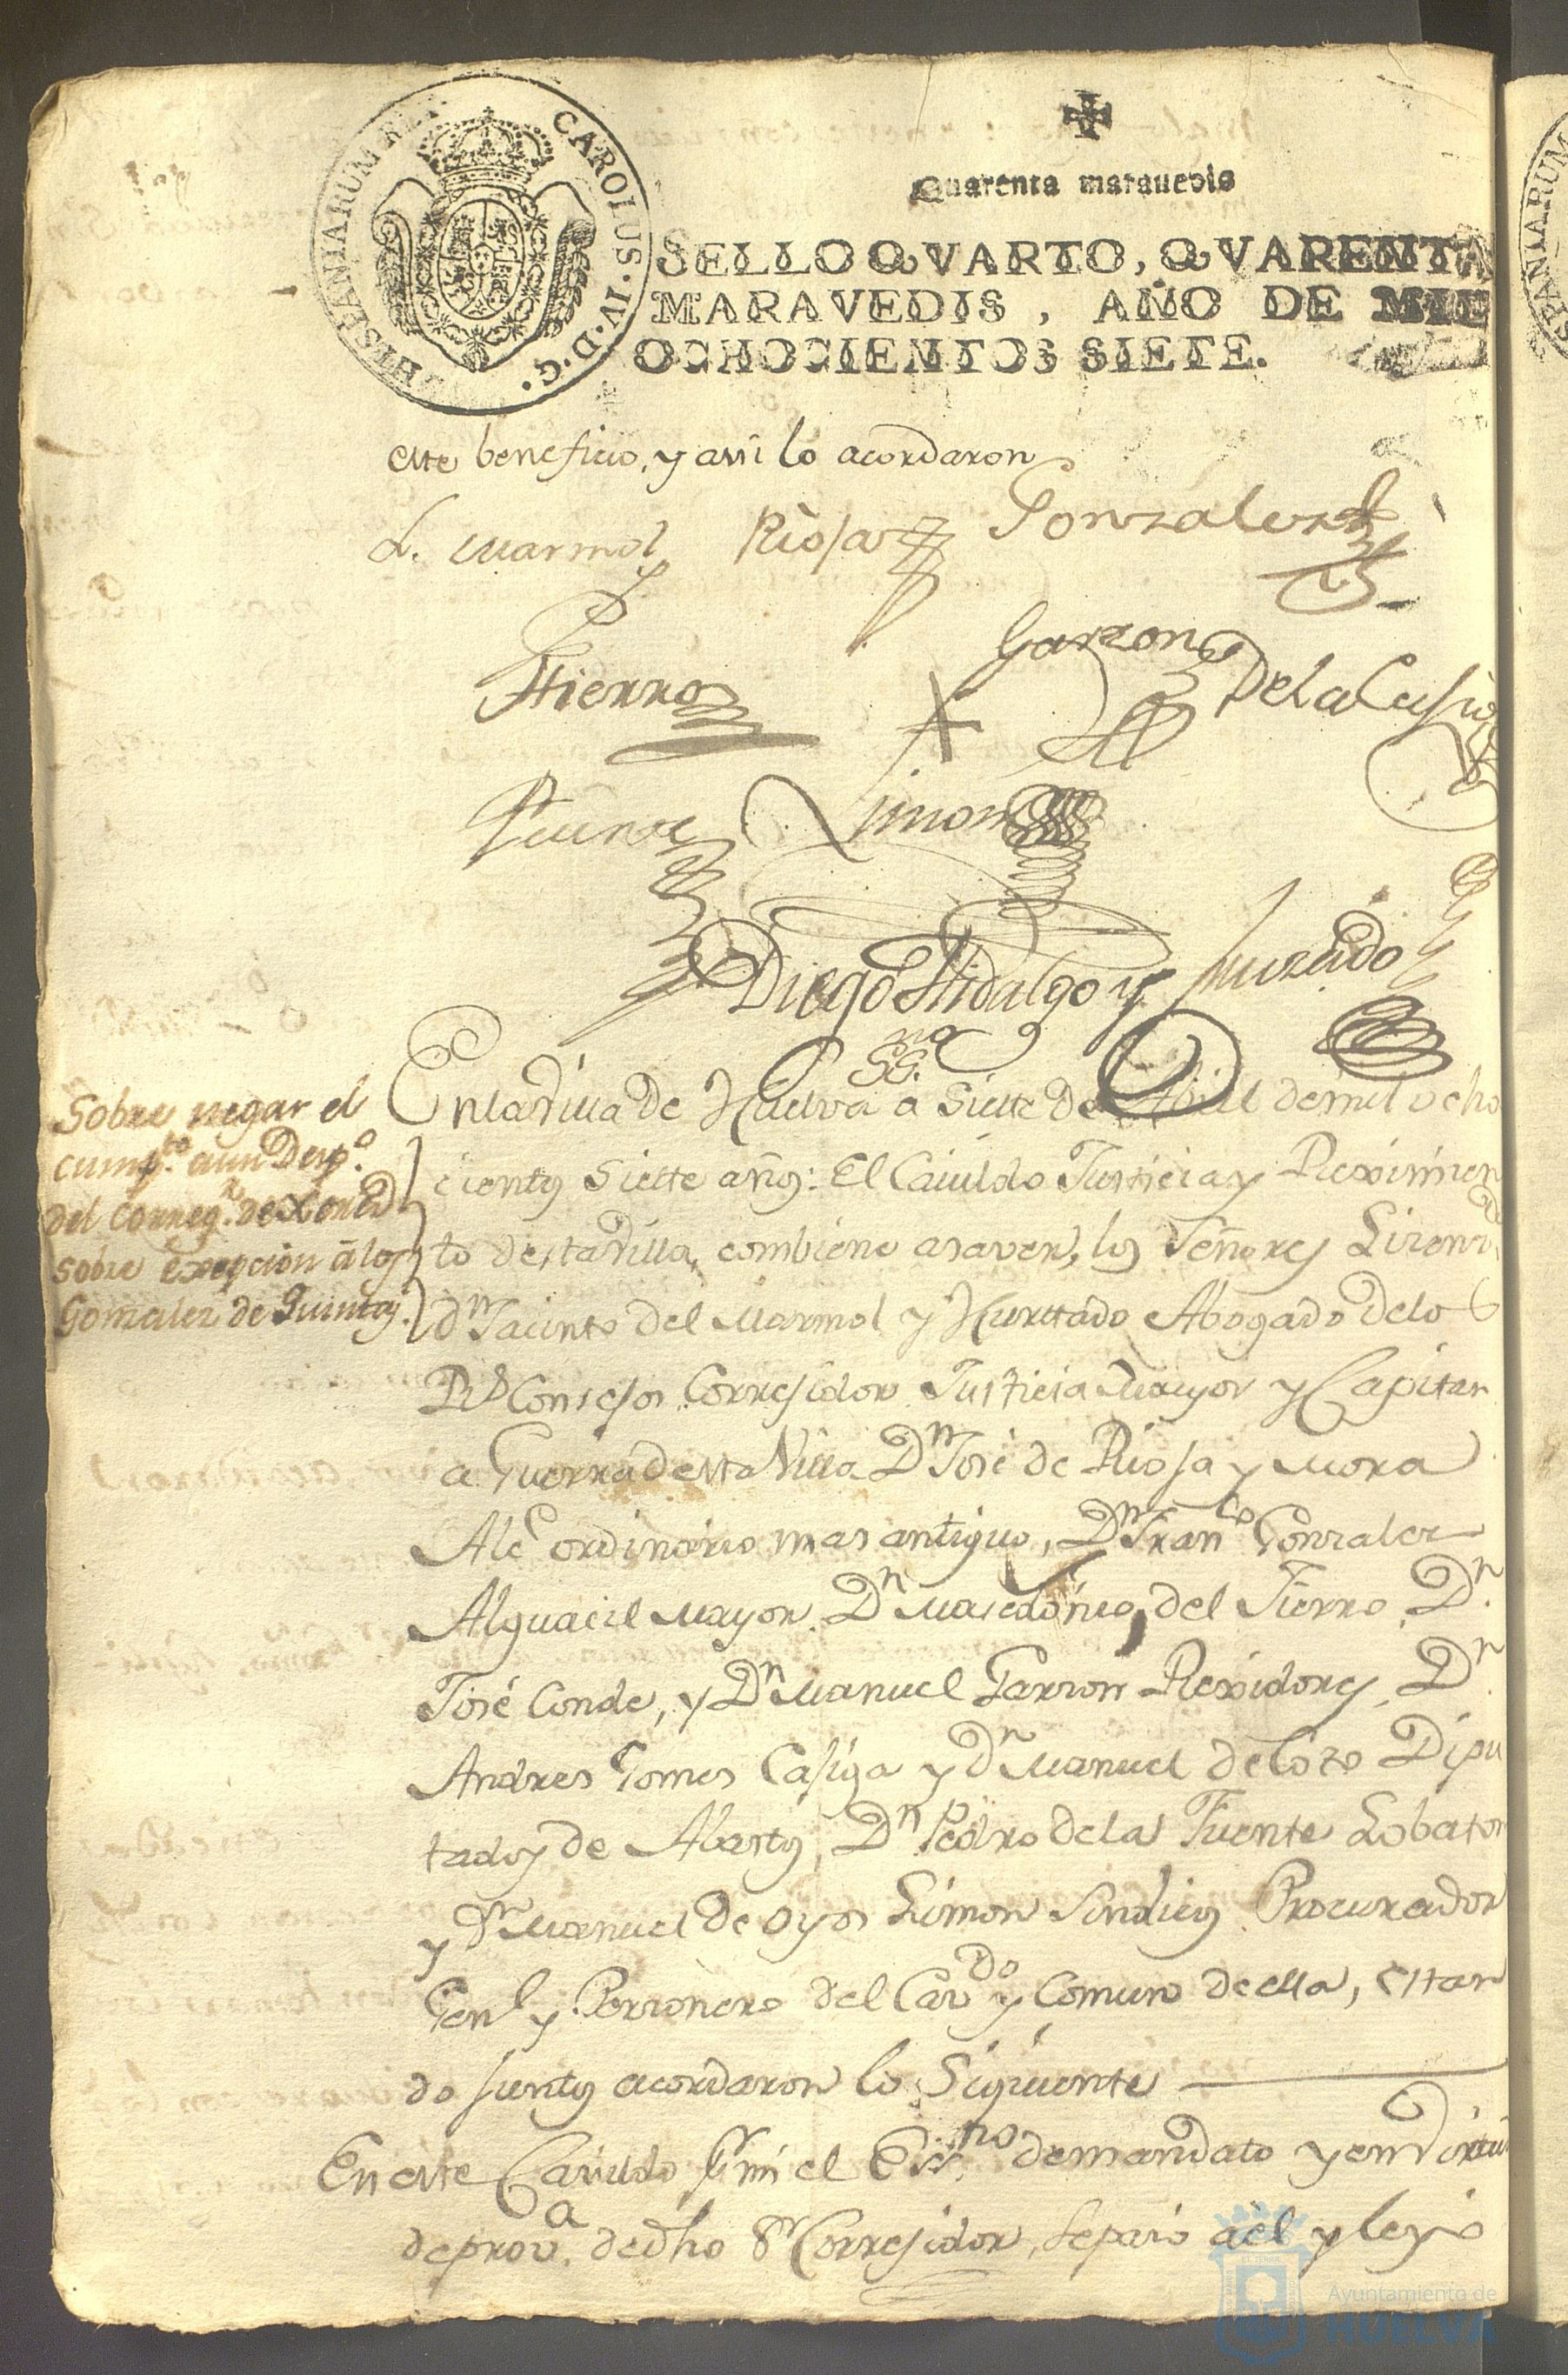 CAROLUS·IV·D·G·
HISPANIARUM REX
Quarenta marauedis
SELLO QVARTO, QVARENTA
MARAVEDIS, AÑO DE MIL
OCHOCIENTOS SIETE.
este beneficio, y assi lo acordaron
L. Marmol Rioja Gonzalez
Garzon
Hierro De la Casiga
Fuente Limon
Diego Hidalgo y Jurado
SS.no
Sobre negar el
cump.to a un Desp.o
del Correg.r de Xerez
sobre exepcion à los
Gonzalez de Quintas.
En la Villa de Huelva a Siette de Abril de mil ocho
cientos Siette años: El Cavildo Justicia y Reximien
to de esta Villa, combiene a saver, los Señores Lizenz.do
dn Jacinto del Marmol y Hurttado Abogado de lo
Rs. Consejos Corregidor Justicia Mayor y Capitan
a Guerra de esta Villa Dn José de Rioja y Mora
Alce ordinario mas antiguo, Dn Franco Gonzalez
Alguacil Mayor Dn Macedonio del Fierro, Dn
José Conde, y Dn Manuel Garzon Rexidores, Dn
Andres Gomes Casiga y dn Manuel de Coto Dipu
tados de Abastos, Dn Pedro de la Fuente Lobaton
y Dn Manuel de Oyos Limon Sindicos Procurador
Genl y Perzonero del Cavdo y Comun de ella, estan
do juntos acordaron lo Siguiente
En este Cavildo pr mi el Essno de mandato y en virtud
de prova. de dho Sr Corregidor, se pasó a èl y leyó
Ayuntamiento de
HUELVA